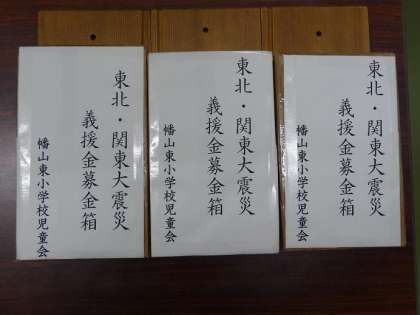 東北・関東大震災
義援金募金箱
幡山東小学校児童会
東北・関東大震災
義援金募金箱
幡山東小学校児童会
東北・関東大震災
義援金募金箱
幡山東小学校児童会